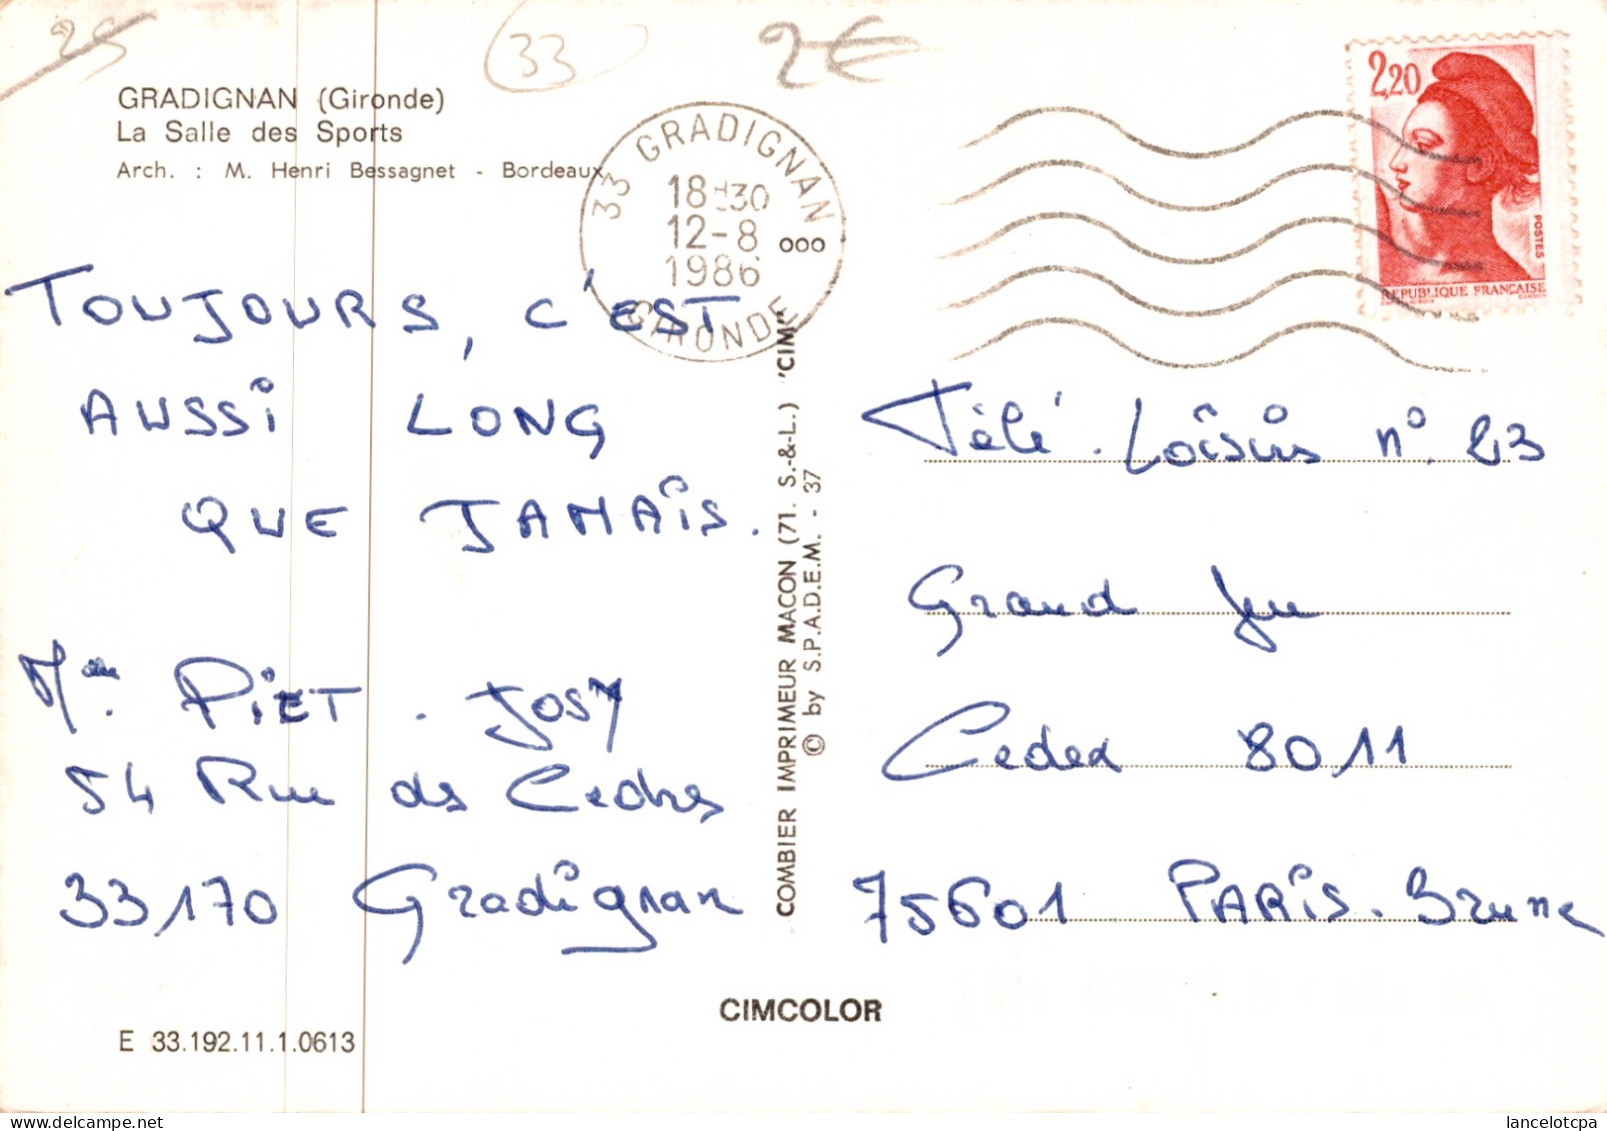 25
33
2€
GRADIGNAN (Gironde)
La Salle des Sports
Arch. : M. Henri Bessagnet - Bordeaux
33 GRADIGNAN
18H30
12-8
1986
000
GIRONDE
2,20
POSTES
REPUBLIQUE FRANÇAISE
TOUJOURS, C'EST
AUSSI LONG
QUE JAMAIS.
Mme. PIET. JOSY
54 Rue des Cedres
33170 Gradignan
COMBIER IMPRIMEUR MACON (71. S.-&-L.) "CIM"
© by S.P.A.D.E.M. - 37
Télé. Loisirs n° 23
Grand Jeu
Cedex 8011
75601 PARIS. Brune
CIMCOLOR
E 33.192.11.1.0613
lancelotcpa